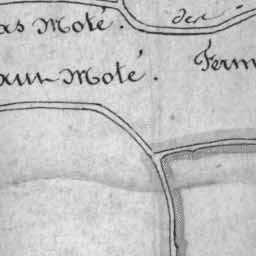 as Moté.
des
aux Moté.
Ferm